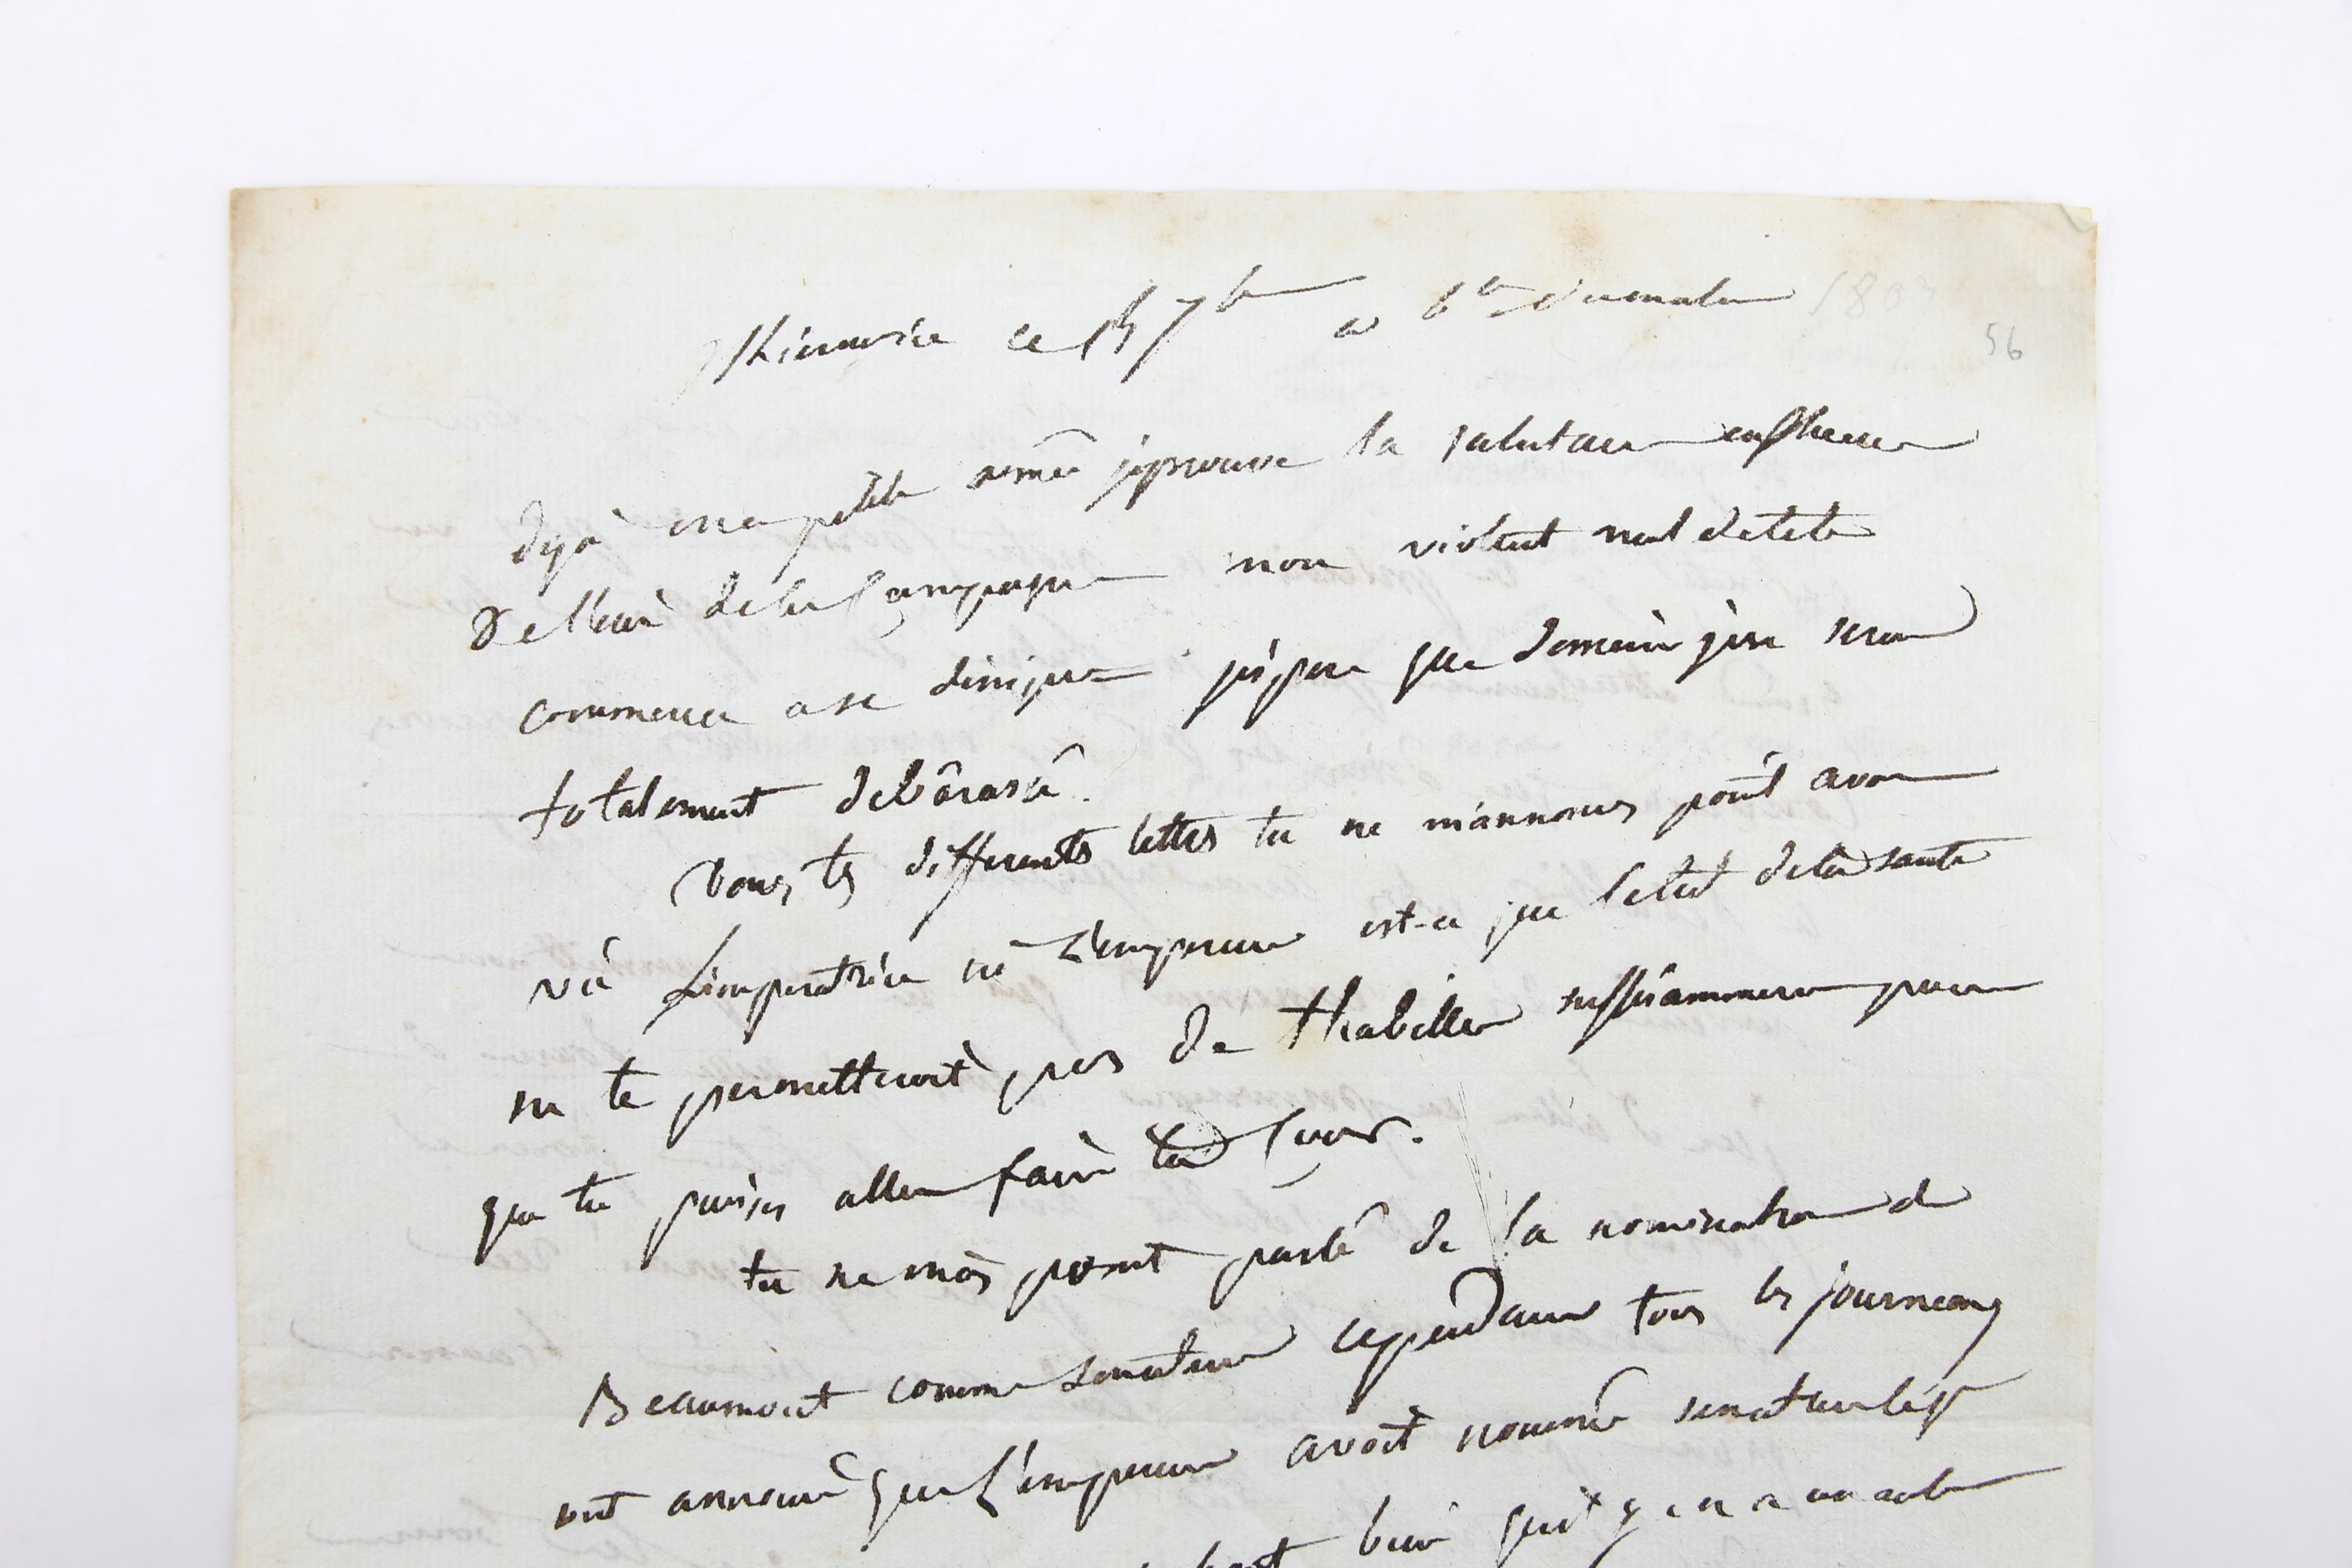 Skierniewice ce 15 7bre a 6h du matin 180
56
deja ma petite aimée j'eprouve la salutaire influence
De l'air de la Campagne mon violent mal de tete
commence a se dissiper j'espere que demain j'en serai
totalement debârassé.
Dans tes differents lettres tu ne m'annonces point avoir
vû L'imperatrice ni L'empereur est-ce que l'etat de ta santé
ne te permetterait pas de t'habiller suffisamment pour
que tu puisses aller faire ta Cour.
tu ne m'as point parlé de la nomination de
Beaumont comme senateur cependant tous les journeaux
ont annoncé que L'empereur avoit nommé senateur le gl
bien qu'il y en a un autre